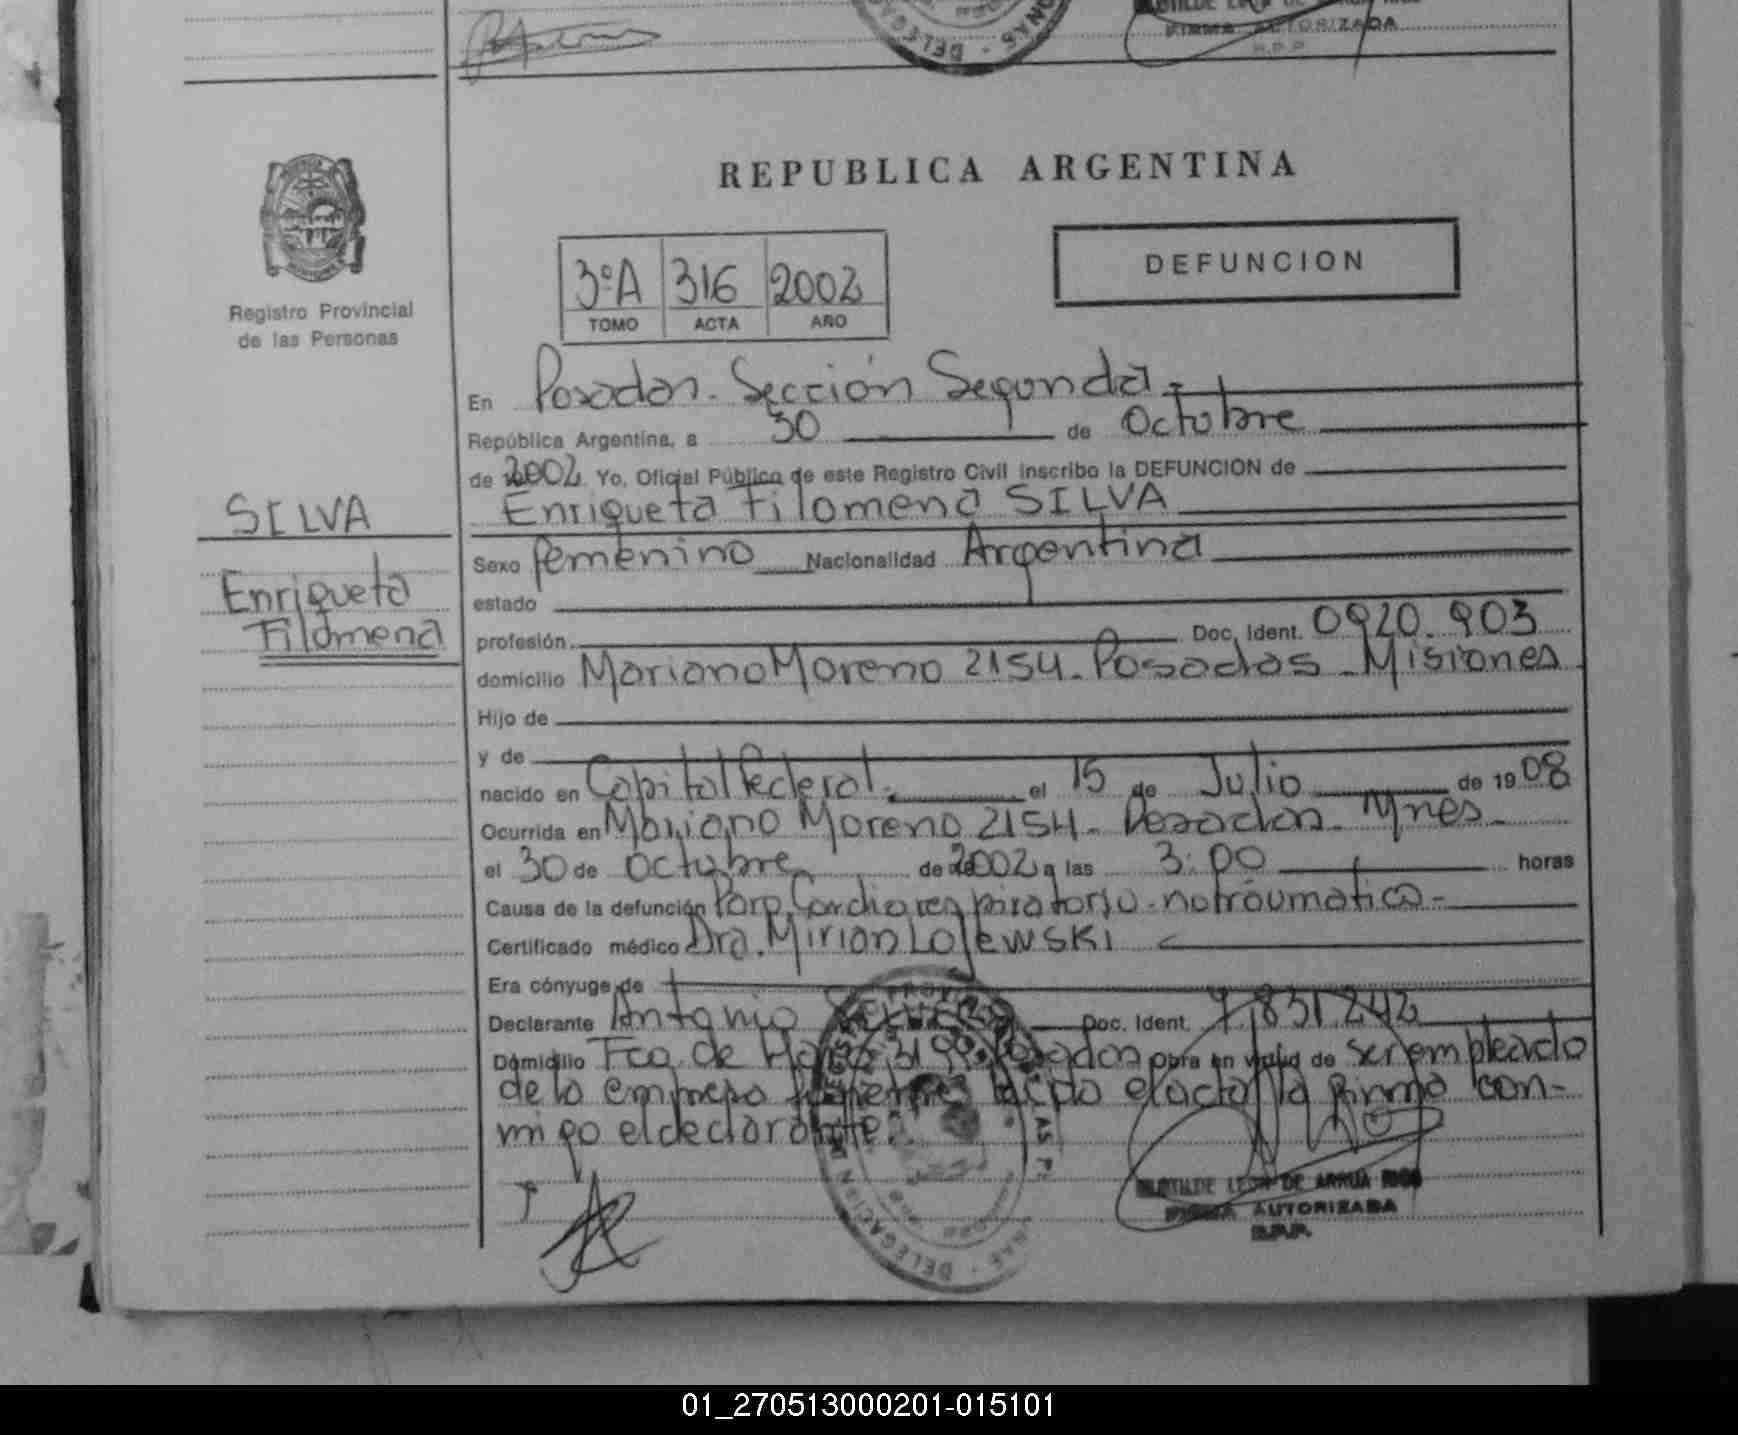 FIRMA AUTORIZADA
R.P.P.
DELEGA
REPUBLICA ARGENTINA
3ºA 316 2002
TOMO ACTA AÑO
DEFUNCION
Registro Provincial
de las Personas
En Posadas. Sección Segunda.
República Argentina, a 30 de Octubre
de 2002 Yo, Oficial Público de este Registro Civil inscribo la DEFUNCION de
SILVA
Enriqueta Filomena SILVA
Sexo femenino Nacionalidad Argentina
Enriqueta
Filomena
estado
profesión Doc. Ident. 0920.903
domicilio Mariano Moreno 2154. Posadas - Misiones
Hijo de
y de
nacido en Capital Federal. el 15 de Julio de 1908
Ocurrida en Mariano Moreno 2154 - Posadas - Mnes.
el 30 de Octubre de 2002 a las 3:00 horas
Causa de la defunción Paro Cardiorespiratorio - no traumatico -
Certificado médico Dra. Mirian Lojewski
Era cónyuge de
Declarante Antonio Doc. Ident. 7.831.242
Domicilio Fco. de Haro 3199. Posadas obra en virtud de ser empleado
de la empresa leido el acta la firma con-
migo el declarante.
LEON DE ARRUA RIOS
FIRMA AUTORIZADA
R.P.P.
DELEGACION
01_270513000201-015101